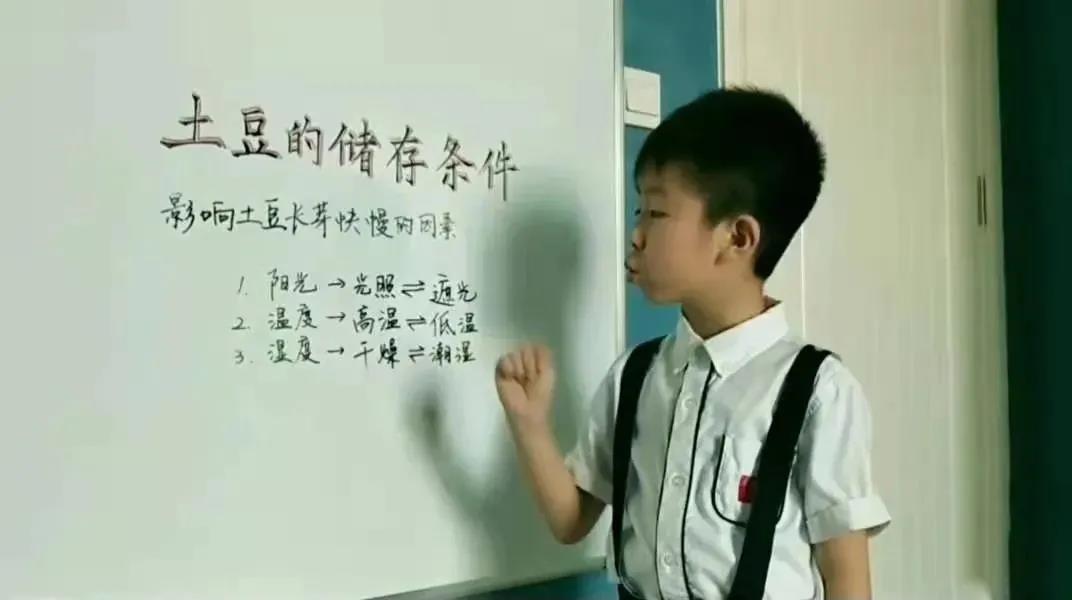 土豆的储存条件
影响土豆长芽快慢的因素
1. 阳光→光照⇌遮光
2. 温度→高温⇌低温
3. 湿度→干燥⇌潮湿